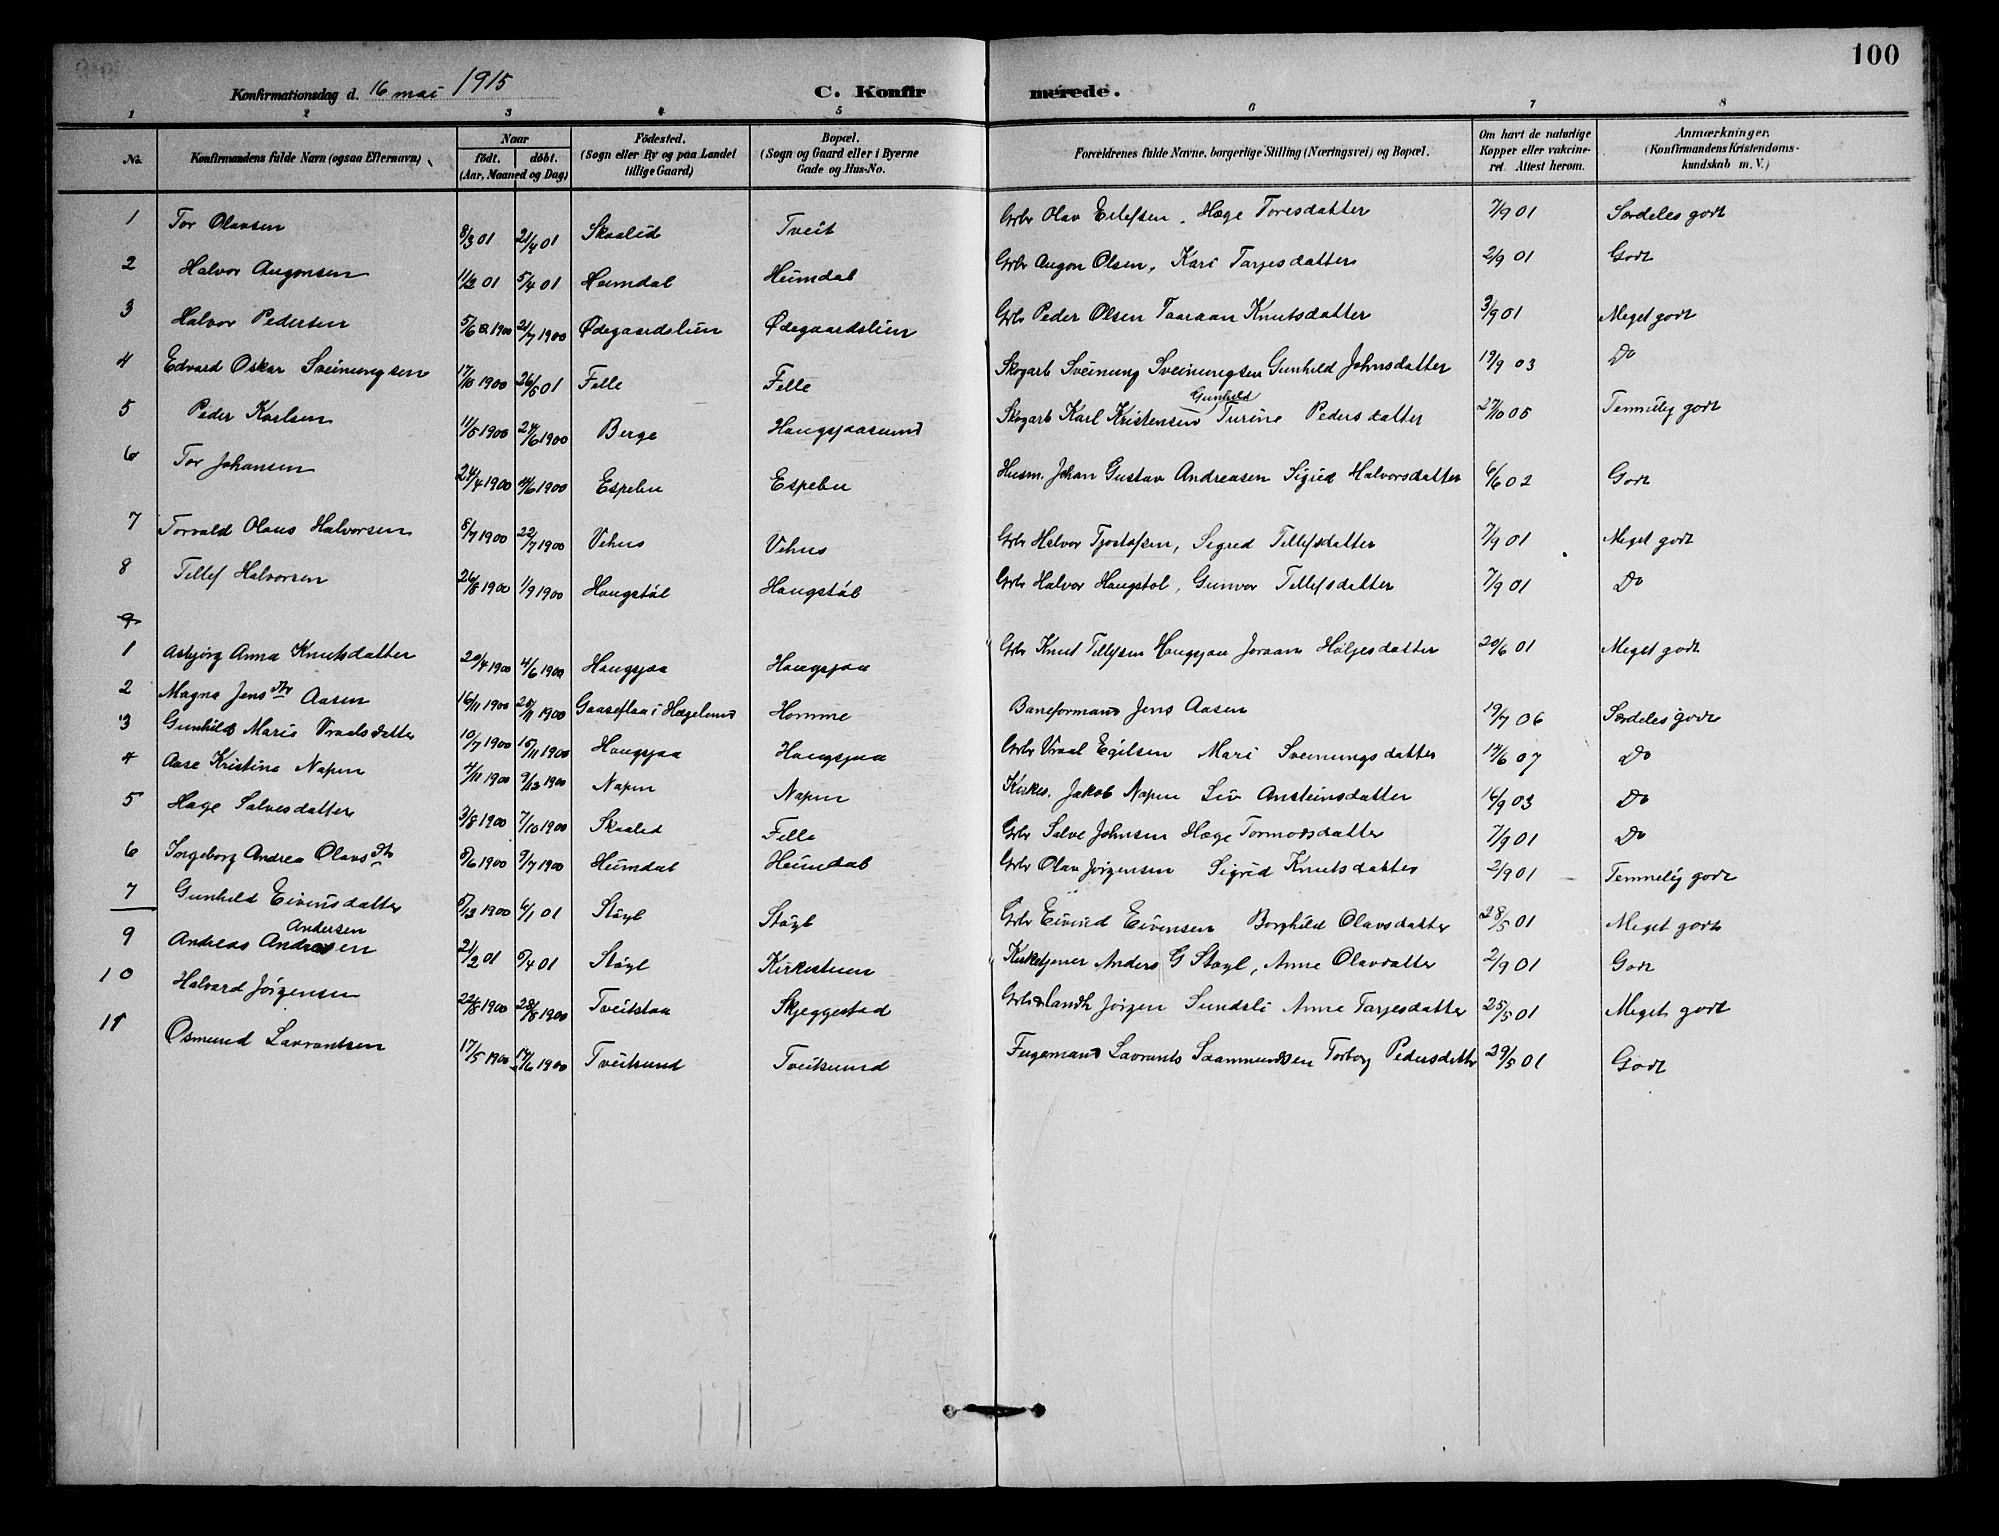 100
Konfirmationsdag d. 16 mai 1915 C. Konfir merede.
1 2 3 4 5 6 7 8
No. Konfirmandens fulde Navn (ogsaa Efternavn). Naar födt. döbt. (Aar, Maaned og Dag) Födested. (Sogn eller By og paa Landet tillige Gaard) Bopæl. (Sogn og Gaard eller i Byerne Gade og Hus-No. Forældrenes fulde Navne, borgerlige Stilling (Næringsvei) og Bopæl. Om havt de naturlige Kopper eller vakcineret. Attest herom. Anmærkninger. (Konfirmandens Kristendomskundskab m. V.)
1 Tor Olavsen 8/3 01 21/4 01 Skaalid Tveit Grbr Olav Eilefsen, Hæge Toresdatter 7/9 01 Særdeles godt
2 Halvor Augonsen 11/2 01 5/4 01 Heimdal Heimdal Grbr Augon Olsen, Kari Tarjesdatter 2/9 01 Godt
3 Halvor Pedersen 5/6 1900 21/7 1900 Ødegaardslien Ødegaardslien Grbr Peder Olsen Taaraan Knutsdatter 3/9 01 Meget godt
4 Edvard Oskar Sveinungsen 17/10 1900 26/5 01 Felle Felle Skogarb Sveinung Sveinungsen Gunhild Johnsdatter 19/9 03 Do
5 Peder Karlsen 11/5 1900 24/6 1900 Berge Haugsjaasund Skogarb Karl Kristensen Gunhild Turine Pedersdatter 27/10 05 Temmelig godt
6 Tor Johansen 24/4 1900 /6 1900 Espebu Espebu Husm. Johan Gustav Andreasen Sigrid Halvorsdatter 6/6 02 Godt
7 Torvald Olaus Halvorsen 8/7 1900 22/7 1900 Vehus Vehus Grbr Halvor Tjostofsen, Sigrid Tellefsdatter 7/9 01 Meget godt
8 Tellef Halvorsen 26/8 1900 1/9 1900 Haugstöl Haugstöl Grbr Halvor Haugstol, Gunvor Tellefsdatter 7/9 01 Do
9
1 Asbjörg Anna Knutsdatter 20/4 1900 4/6 1900 Haugsjaa Haugsjaa Grbr Knut Tellefsen Haugsjaa Joraan Höljesdatter 20/6 01 Meget godt
2 Magna Jensdtr Aasen 16/11 1900 25/11 1900 Gaaseflaa i Hægeland Homme Baneformand Jens Aasen 19/7 06 Særdeles godt
3 Gunhild Marie Vraalsdatter 10/7 1900 15/11 1900 Haugsjaa Haugsjaa Grbr Vraal Egilsen Mari Sveinungsdatter 17/6 07 Do
4 Aase Kristine Napen 4/11 1900 9/12 1900 Napen Napen Kirkes. Jakob Napen Liv Ansteinsdatter 16/9 03 Do
5 Hæge Salvesdatter 3/8 1900 7/10 1900 Skaalid Felle Grbr Salve Johnsen Hæge Tormodsdatter 7/9 01 Do
6 Ingeborg Andrea Olavsdtr 8/6 1900 9/7 1900 Heimdal Heimdal Grbr Olav Jörgensen Sigrid Knutsdatter 2/9 01 Temmelig godt
7 Gunhild Eivinsdatter 5/12 1900 6/1 01 Stöyl Stöyl Grbr Eivind Eivensen Borghild Olavsdatter 28/5 01 Meget godt
9 Andreas Andersen 21/2 01 5/4 01 Stöyl Kirkestuen Kirketjener Anders G Stöyl, Anne Olavdatter 2/9 01 Godt
10 Halvard Jörgensen 22/8 1900 28/8 1900 Tveitstaa Skjeggestad Grbr & landh Jörgen Sundsli Anne Tarjesdatter 25/5 01 Meget godt
11 Osmund Lavrantsen 17/5 1900 17/6 1900 Tveitsund Tveitsund Fugemand Lavrants Saamundsen Torborg Pedersdatter 29/5 01 Godt